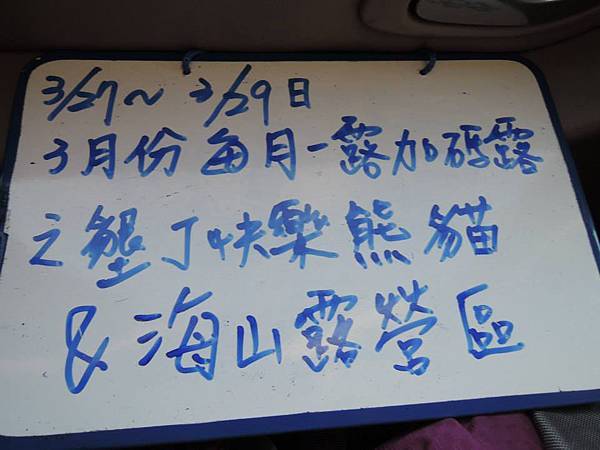 3/27~3/29日
3月份每月一露加碼露
之墾丁快樂熊貓
&海山露營區